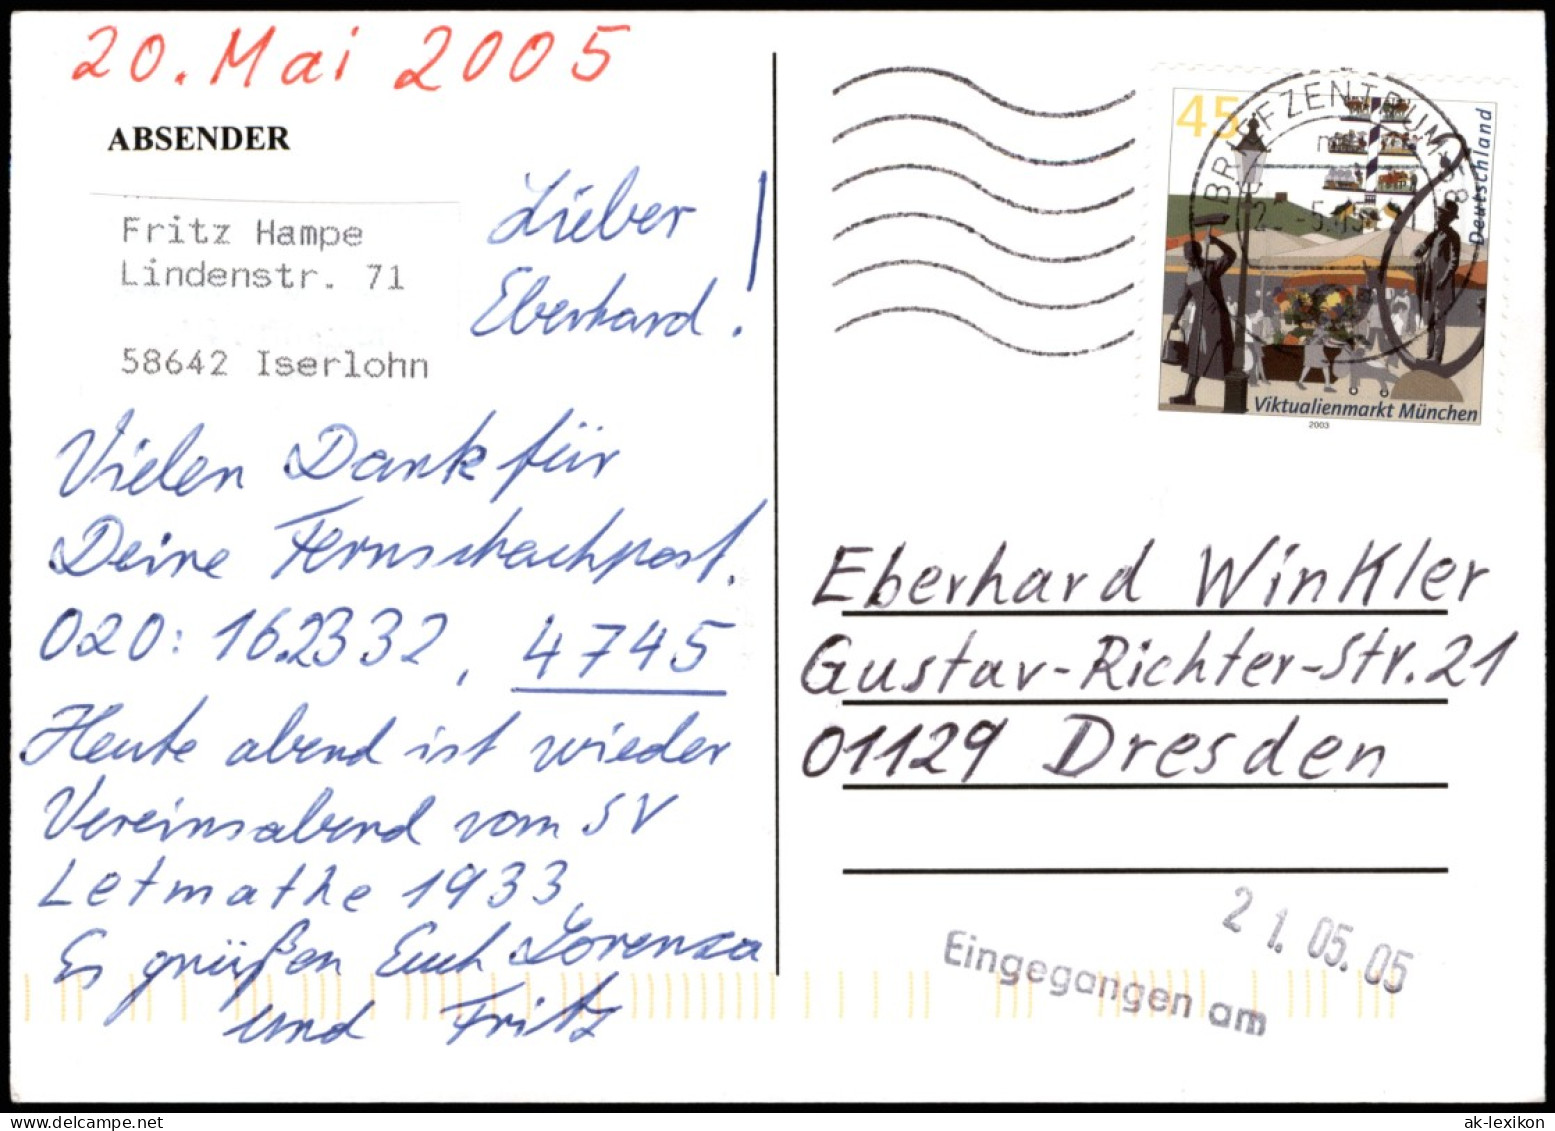 20. Mai 2005
ABSENDER
Fritz Hampe
Lindenstr. 71
58642 Iserlohn
Lieber
Eberhard!
Vielen Dank für
Deine Fernschachpost.
020: 16.2332, 4745
Heute abend ist wieder
Vereinsabend vom SV
Letmathe 1933,
Es grüßen Euch Lorenza
und Fritz
45
Deutschland
Viktualienmarkt München
2003
BRIEFZENTRUM 58
Eberhard Winkler
Gustav-Richter-Str. 21
01129 Dresden
21. 05. 05
Eingegangen am
ak-lexikon